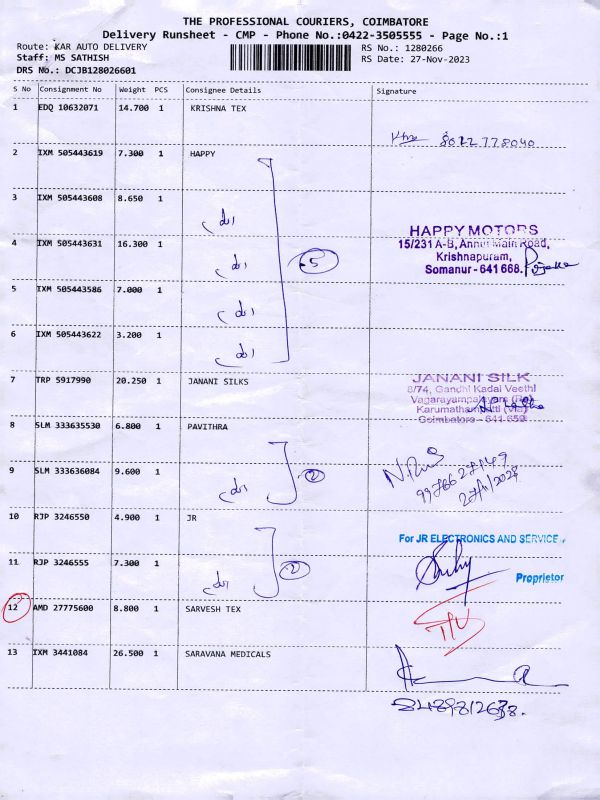 THE PROFESSIONAL COURIERS, COIMBATORE
Delivery Runsheet - CMP - Phone No.:0422-3505555 - Page No.:1
Route: KAR AUTO DELIVERY RS No.: 1280266
Staff: MS SATHISH RS Date: 27-Nov-2023
DRS No.: DCJB128026601
S No Consignment No Weight PCS Consignee Details Signature
1 EDQ 10632071 14.700 1 KRISHNA TEX
8022778040
2 IXM 505443619 7.300 1 HAPPY
3 IXM 505443608 8.650 1
HAPPY MOTORS
4 IXM 505443631 16.300 1 15/231 A-B, Annur Main Road,
5 Krishnapuram,
Somanur - 641 668.
5 IXM 505443586 7.000 1
6 IXM 505443622 3.200 1
7 TRP 5917990 20.250 1 JANANI SILKS JANANI SILK
8/74, Gandhi Kadai Veethi
Vagarayampalayam (Po)
Karumathampatti (Via)
Coimbatore - 641 659
8 SLM 333635530 6.800 1 PAVITHRA
9 SLM 333636084 9.600 1 2
9976627147
27/11/2023
10 RJP 3246550 4.900 1 JR
For JR ELECTRONICS AND SERVICE
11 RJP 3246555 7.300 1 2
Proprietor
12 AMD 27775600 8.800 1 SARVESH TEX
13 IXM 3441084 26.500 1 SARAVANA MEDICALS